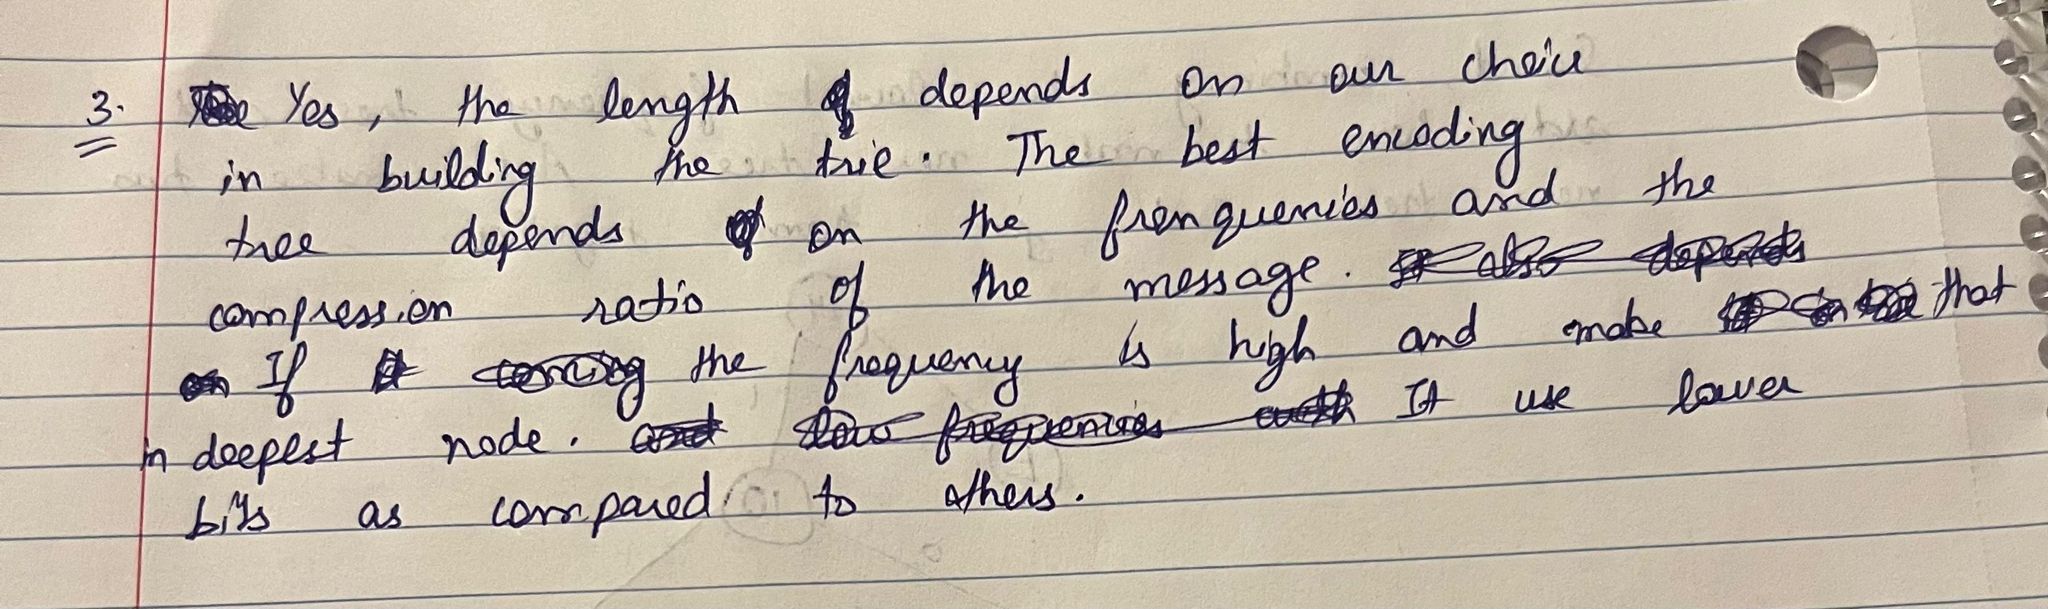 3. Yes, the length depends on our choice
in building the trie. The best encoding
tree depends on the frenquenies and the
compression ratio of the message.
If the frequency is high and make that
in deepest node. It use lower
bits as compared to others.